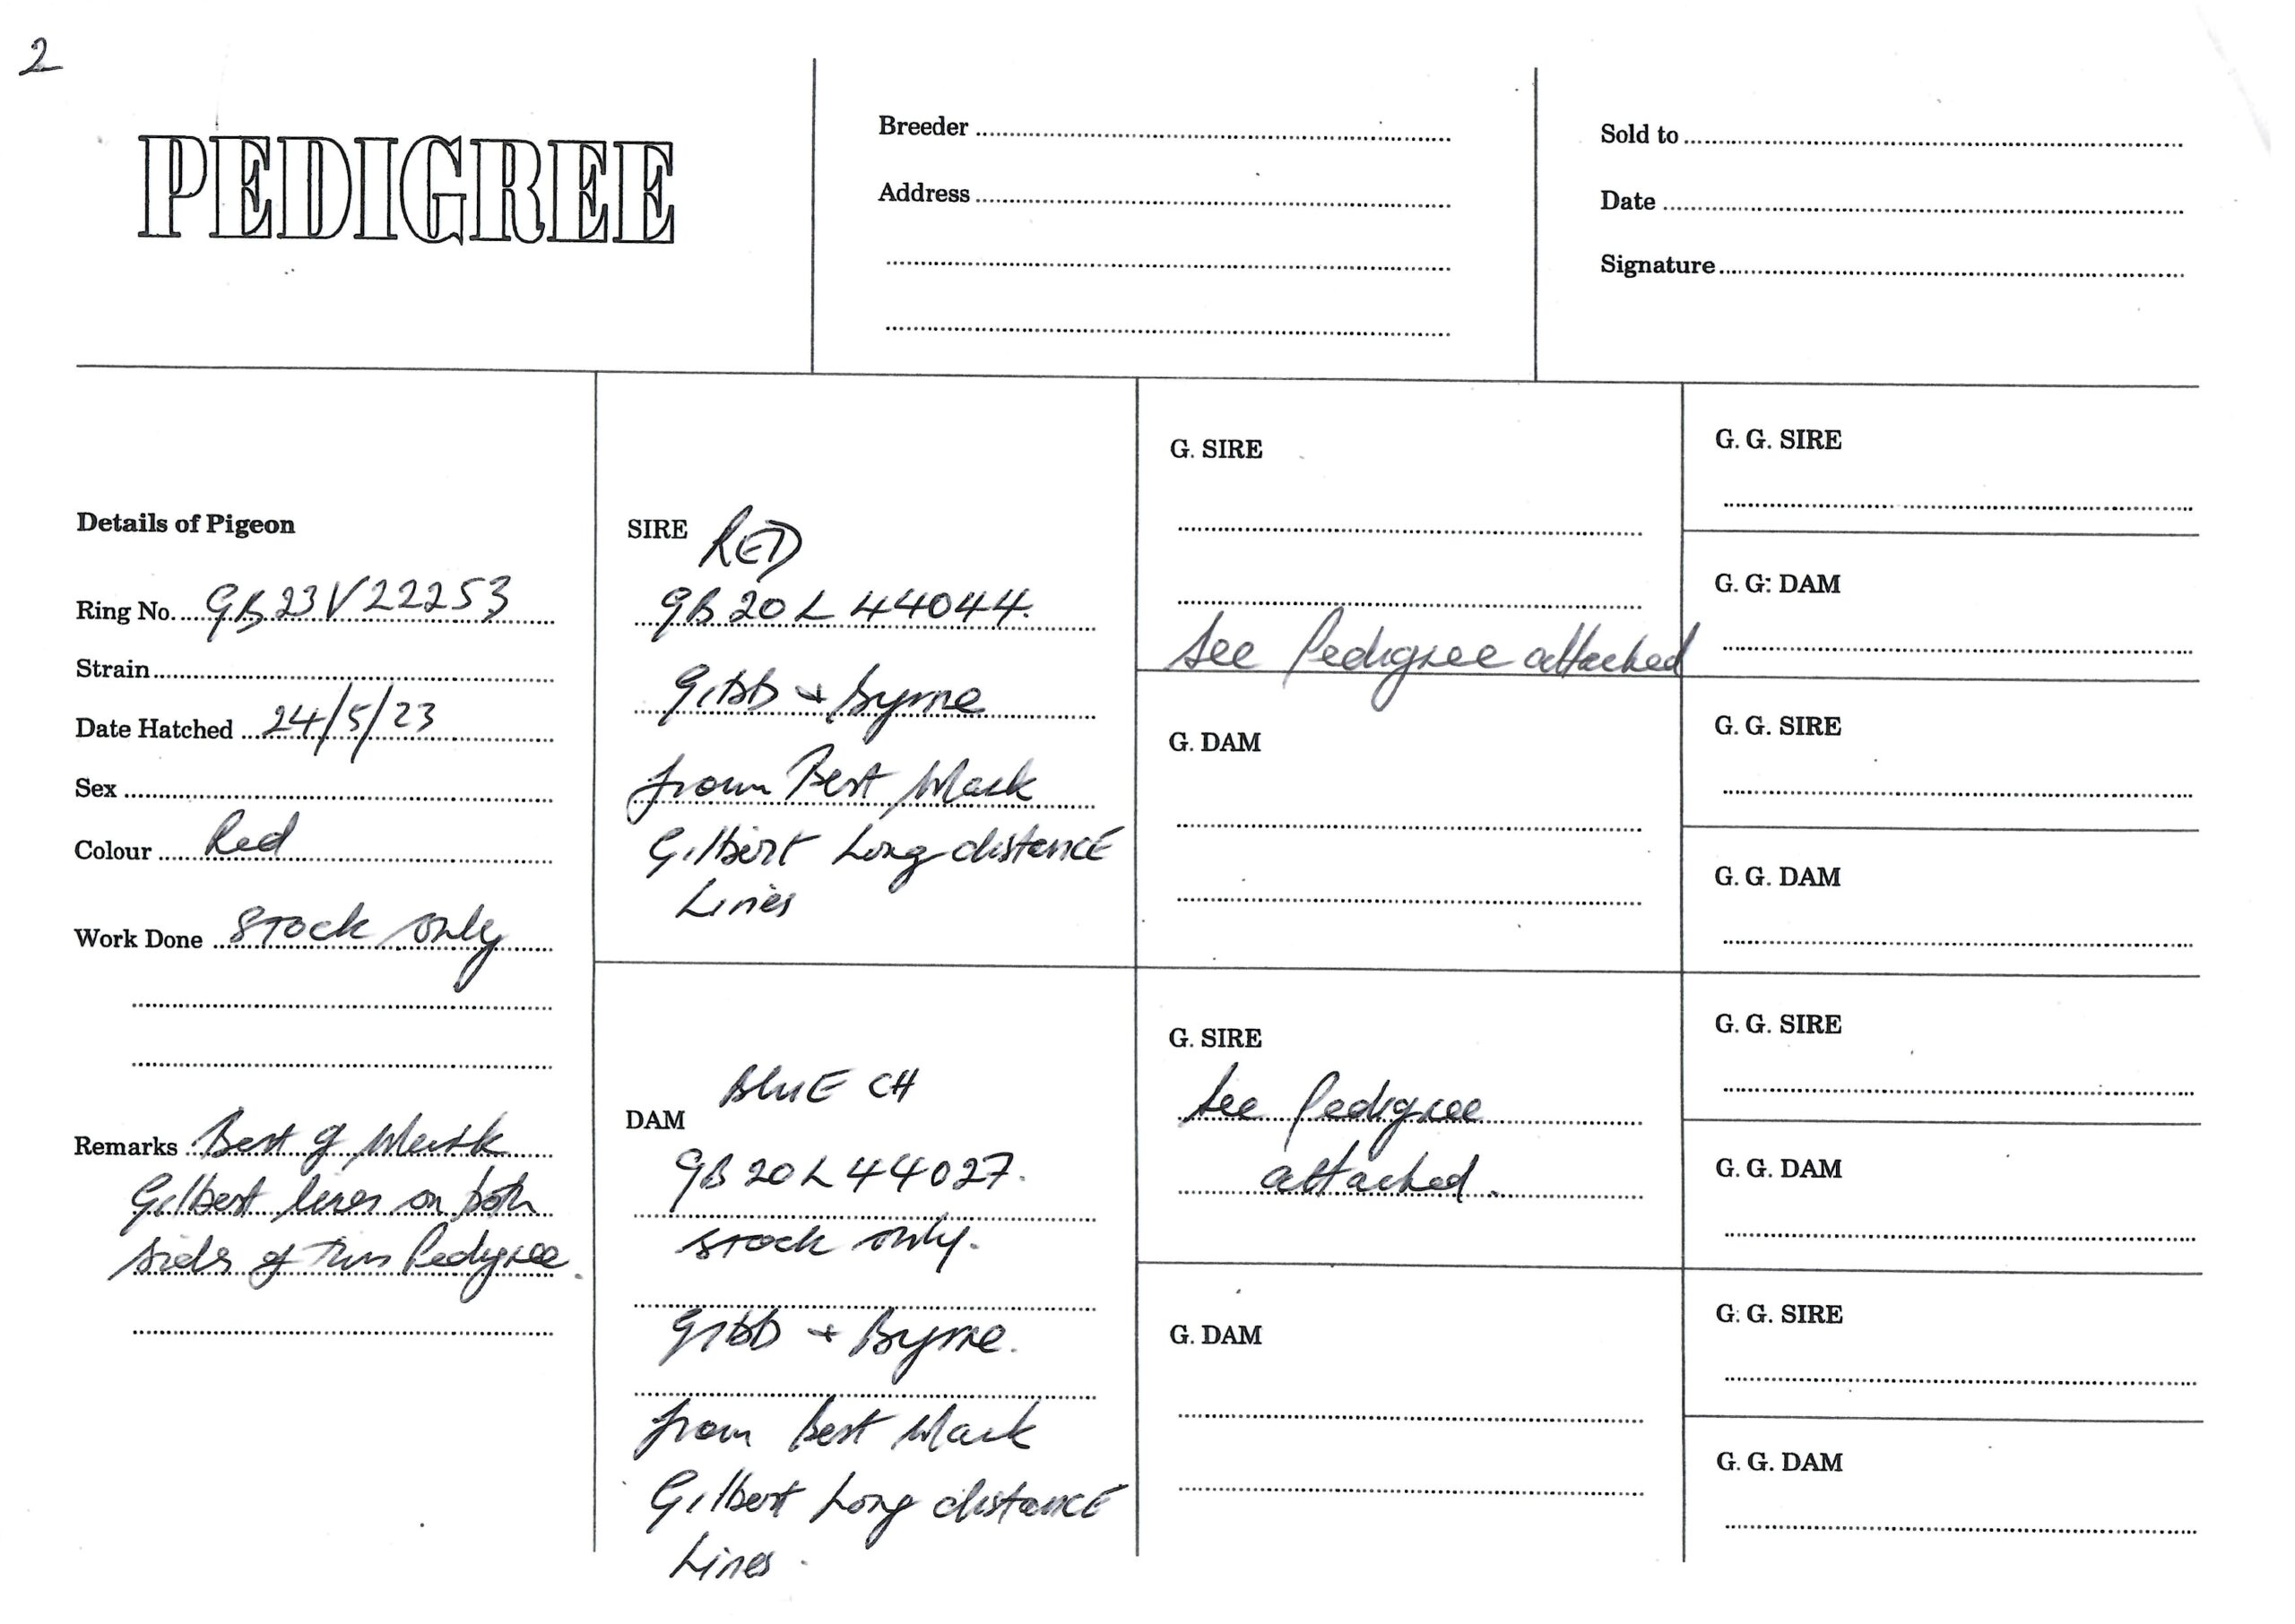 2
PEDIGREE
Breeder
Address
Sold to
Date
Signature
Details of Pigeon
Ring No. GB23V22253
Strain
Date Hatched 24/5/23
Sex
Colour Red
Work Done Stock only
Remarks Best of Mark
Gilbert lines on both
sides of this Pedigree.
SIRE RED
GB20L44044.
Gibb + Byrne
from Best Mark
Gilbert Long distance
Lines
DAM BLUE CH
GB20L44027.
Stock only.
Gibb + Byrne.
from best Mark
Gilbert Long distance
Lines.
G. SIRE
See Pedigree attached
G. DAM
G. SIRE
See Pedigree
attached.
G. DAM
G. G. SIRE
G. G: DAM
G. G. SIRE
G. G. DAM
G. G. SIRE
G. G. DAM
G. G. SIRE
G. G. DAM